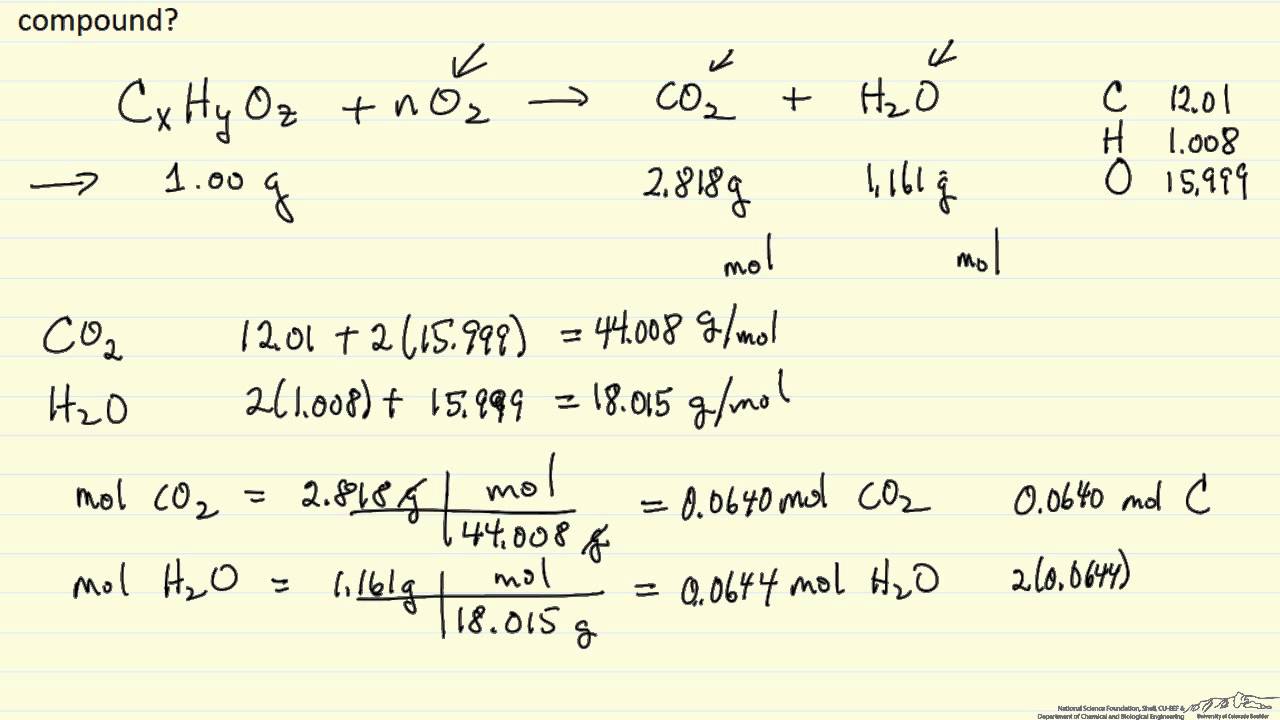 compound?
CxHyOz + nO₂ → CO₂ + H₂O C 12.01
H 1.008
→ 1.00 g 2.818g 1.161 g O 15.999
mol mol
CO₂ 12.01 + 2(15.999) = 44.008 g/mol
H₂O 2(1.008) + 15.999 = 18.015 g/mol
mol CO₂ = 2.818 g | mol / 44.008 g = 0.0640 mol CO₂ 0.0640 mol C
mol H₂O = 1.161g | mol / 18.015 g = 0.0644 mol H₂O 2(0.0644)
National Science Foundation, Shell, CU-EEF &
Department of Chemical and Biological Engineering University of Colorado Boulder